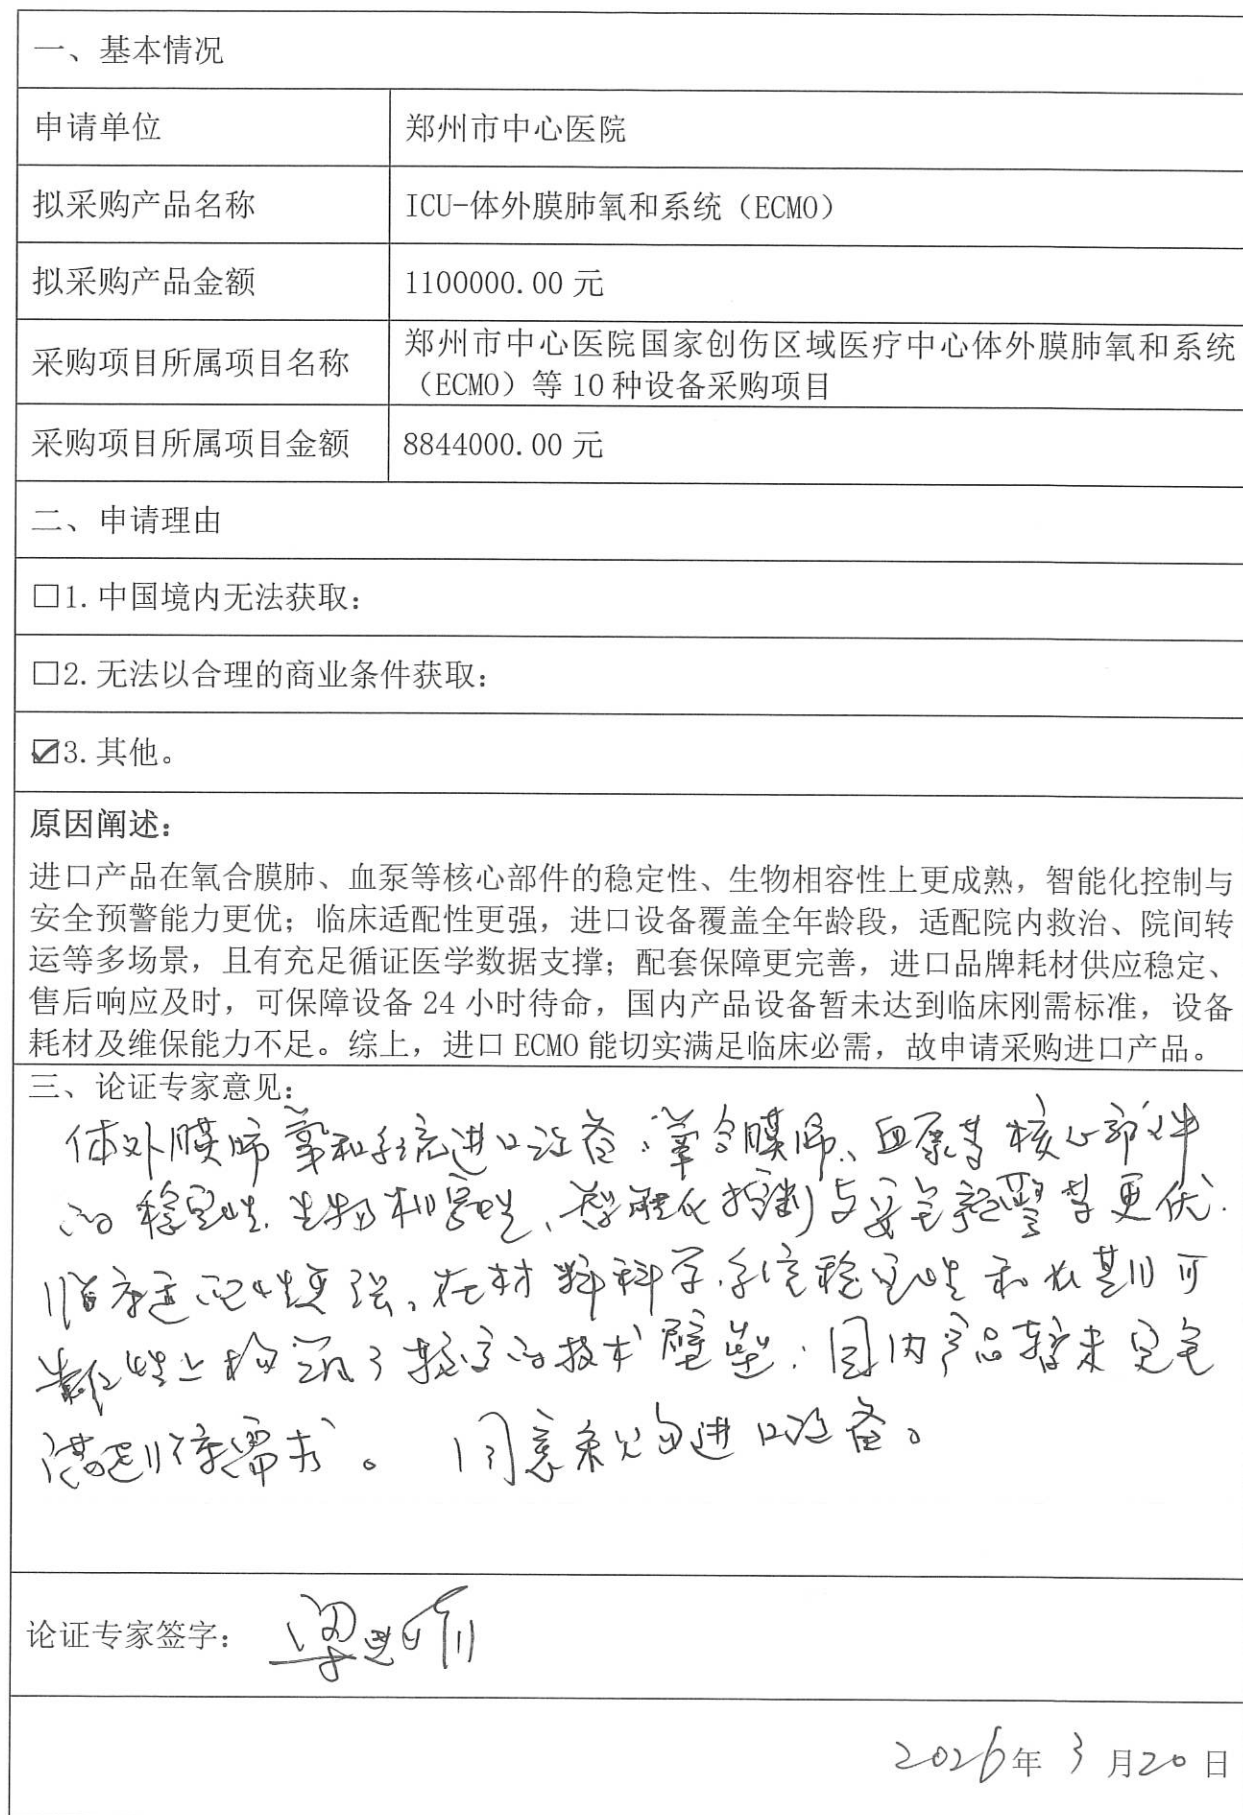 一、基本情况
申请单位
郑州市中心医院
拟采购产品名称
ICU-体外膜肺氧和系统（ECMO）
拟采购产品金额
1100000.00 元
采购项目所属项目名称
郑州市中心医院国家创伤区域医疗中心体外膜肺氧和系统
（ECMO）等 10 种设备采购项目
采购项目所属项目金额
8844000.00 元
二、申请理由
☐1. 中国境内无法获取：
☐2. 无法以合理的商业条件获取：
☑3. 其他。
原因阐述：
进口产品在氧合膜肺、血泵等核心部件的稳定性、生物相容性上更成熟，智能化控制与
安全预警能力更优；临床适配性更强，进口设备覆盖全年龄段，适配院内救治、院间转
运等多场景，且有充足循证医学数据支撑；配套保障更完善，进口品牌耗材供应稳定、
售后响应及时，可保障设备 24 小时待命，国内产品设备暂未达到临床刚需标准，设备
耗材及维保能力不足。综上，进口 ECMO 能切实满足临床必需，故申请采购进口产品。
三、论证专家意见：
体外膜肺氧和系统进口设备，氧合膜肺、血泵等核心部件
的稳定性、生物相容性、智能化控制与安全预警等更优.
临床适配性更强，在材料科学、系统稳定性和长期可
靠性上构筑了较高的技术壁垒；国内产品暂未完全
满足临床需求。 同意采购进口设备。
论证专家签字： 梁
2026年 3 月20 日